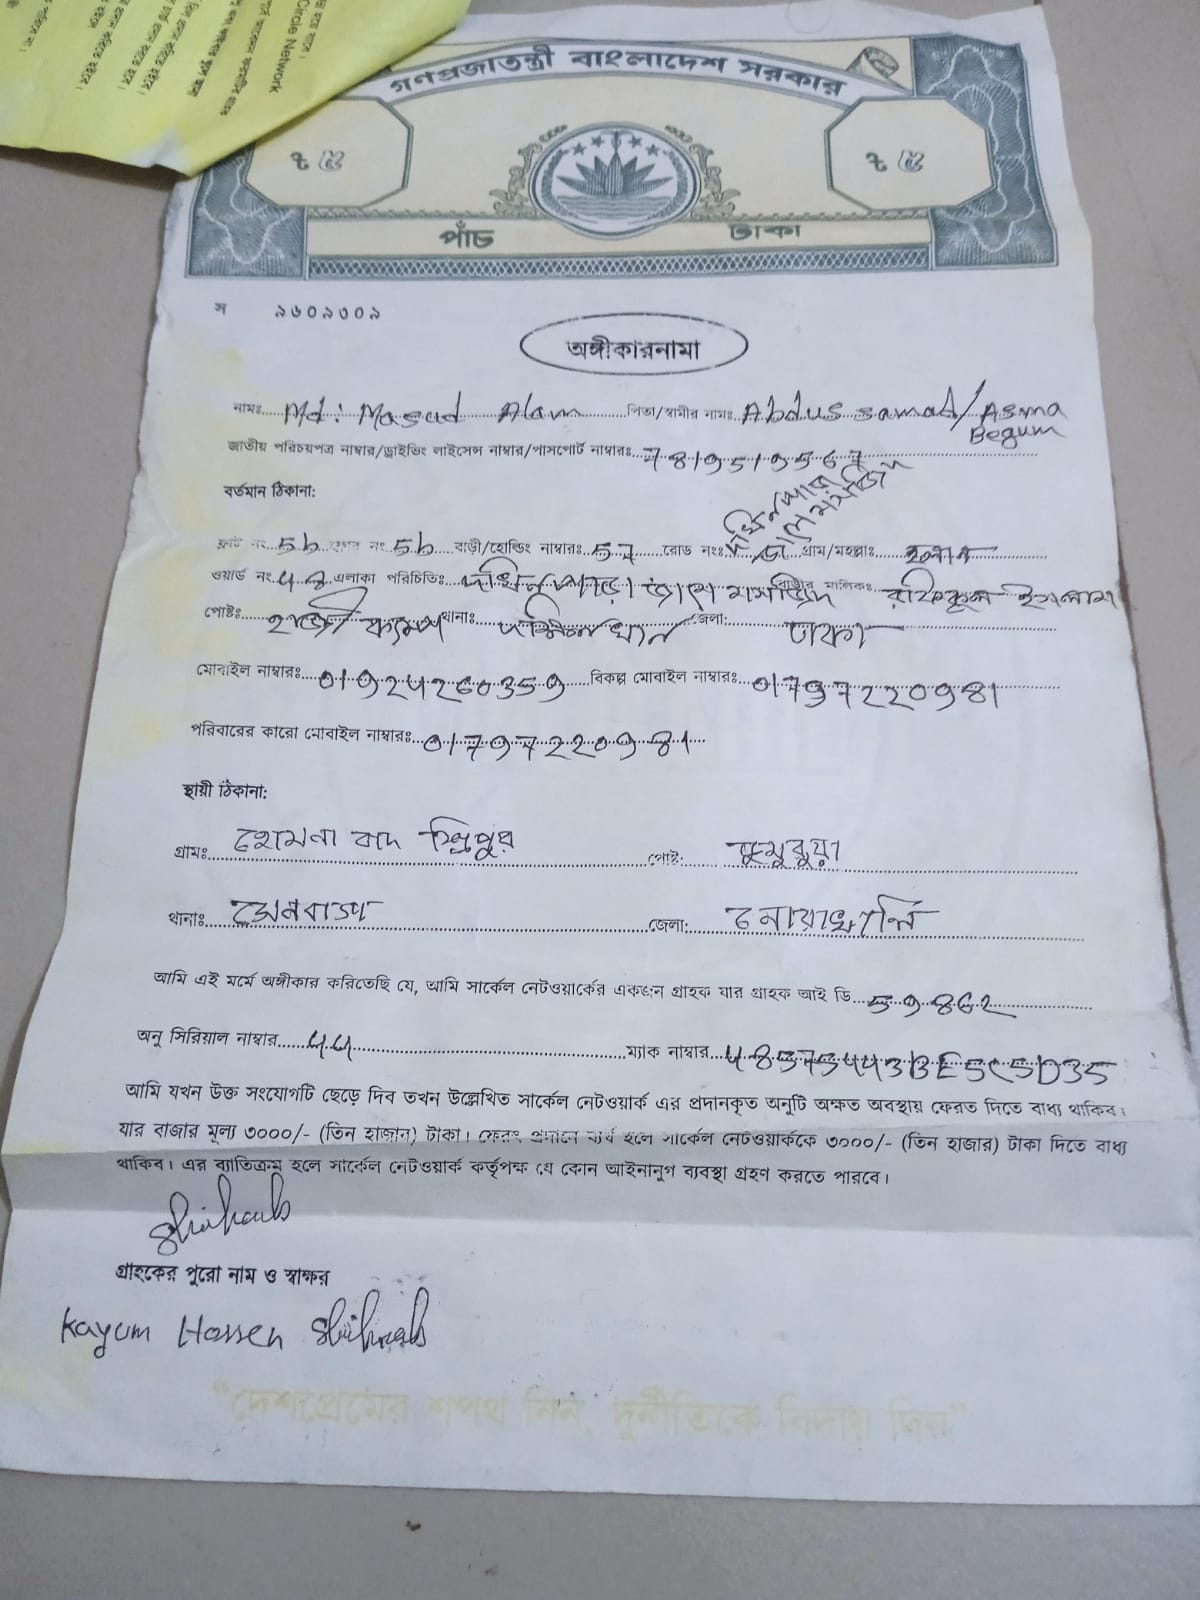 Circle Network
গণপ্রজাতন্ত্রী বাংলাদেশ সরকার
৳ ৫ ৳ ৫
পাঁচ টাকা
স ৯৬০৯৩০৯
অঙ্গীকারনামা
নামঃ Md: Masud Alam পিতা/স্বামীর নামঃ Abdus samad/ Asma
Begum
জাতীয় পরিচয়পত্র নাম্বার/ড্রাইভিং লাইসেন্স নাম্বার/পাসপোর্ট নাম্বারঃ 7819519567
বর্তমান ঠিকানা:
ফ্লাট নং 5b নং 5b বাড়ী/হোল্ডিং নাম্বারঃ 57 রোড নংঃ গ্রাম/মহল্লাঃ
ওয়ার্ড নং এলাকা পরিচিতিঃ মালিকঃ রফিকুল ইসলাম
পোষ্টঃ হাজী ক্যাম্প থানাঃ দক্ষিনখান জেলা: ঢাকা
মোবাইল নাম্বারঃ 01924260359 বিকল্প মোবাইল নাম্বারঃ 01797220981
পরিবারের কারো মোবাইল নাম্বারঃ 01797220981
স্থায়ী ঠিকানা:
গ্রামঃ পোষ্ট:
থানাঃ সেনবাগ জেলা: নোয়াখালি
আমি এই মর্মে অঙ্গীকার করিতেছি যে, আমি সার্কেল নেটওয়ার্কের একজন গ্রাহক যার গ্রাহক আই ডি 59862
অনু সিরিয়াল নাম্বার 44 ম্যাক নাম্বার 485754443BE5C5D35
আমি যখন উক্ত সংযোগটি ছেড়ে দিব তখন উল্লেখিত সার্কেল নেটওয়ার্ক এর প্রদানকৃত অনুটি অক্ষত অবস্থায় ফেরত দিতে বাধ্য থাকিব।
যার বাজার মূল্য ৩০০০/- (তিন হাজার) টাকা। ফেরৎ প্রদানে ব্যর্থ হলে সার্কেল নেটওয়ার্ককে ৩০০০/- (তিন হাজার) টাকা দিতে বাধ্য
থাকিব। এর ব্যাতিক্রম হলে সার্কেল নেটওয়ার্ক কর্তৃপক্ষ যে কোন আইনানুগ ব্যবস্থা গ্রহণ করতে পারবে।
Shihab
গ্রাহকের পুরো নাম ও স্বাক্ষর
Kayum Hossen Shihab
"দেশপ্রেমের শপথ নিন, দুর্নীতিকে বিদায় দিন"